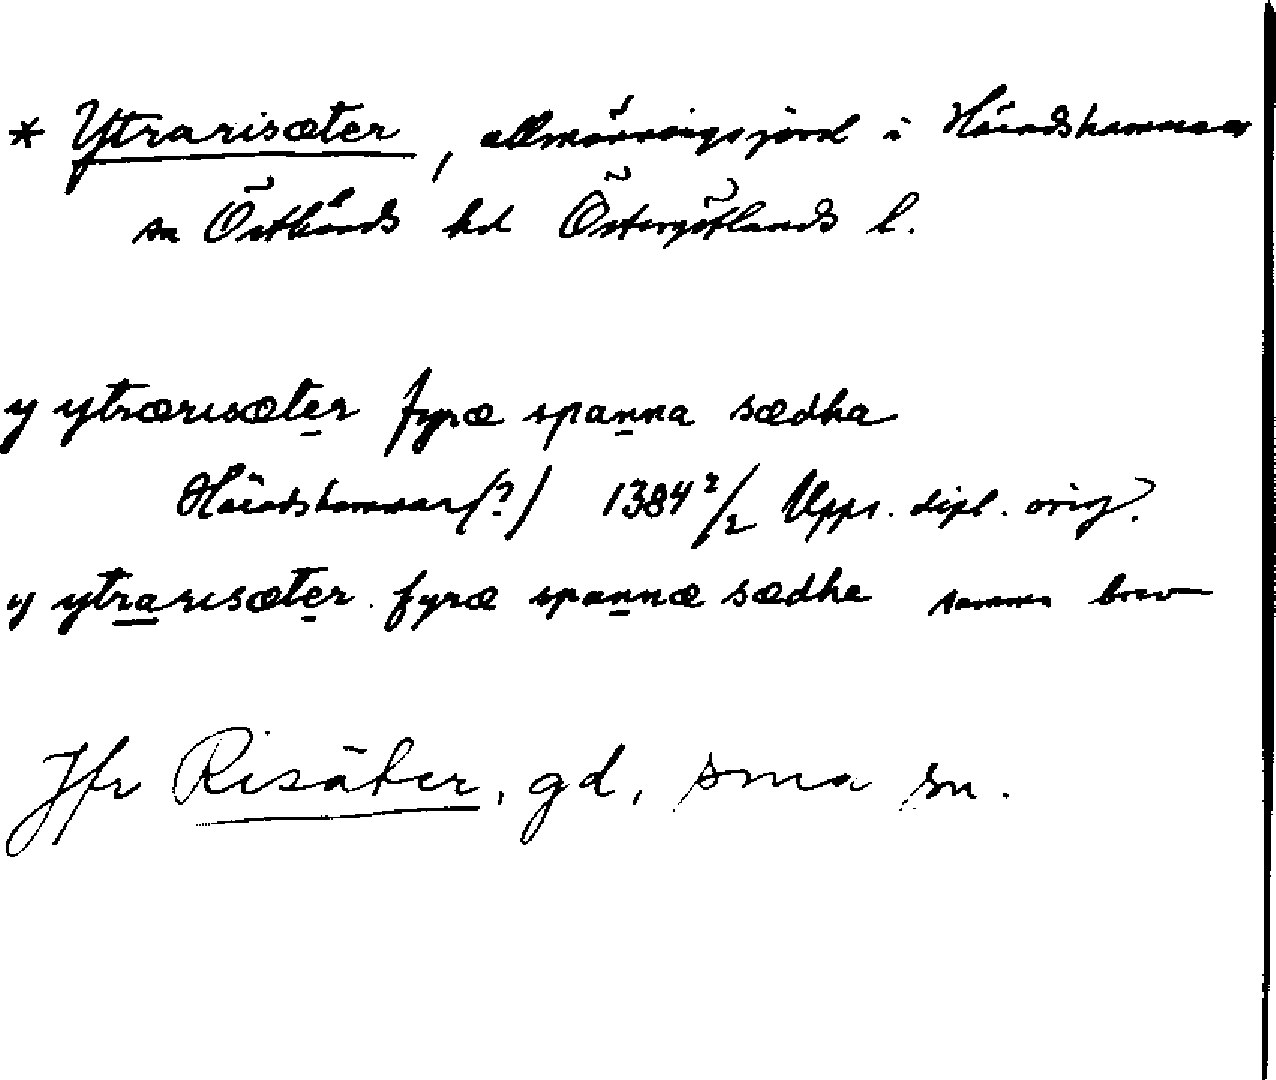 * Ytrarisæter, allmänningsjord i Häradshammar
sn Östkinds hd Östergötlands l.
y ytrærisæter fyræ spanna sædha
Häradshammar(?) 1384 2/2 Upps. dipl. orig.
y ytrarisæter fyræ spannæ sædhe samma brev
Jfr Risäter, gd, sma sn.